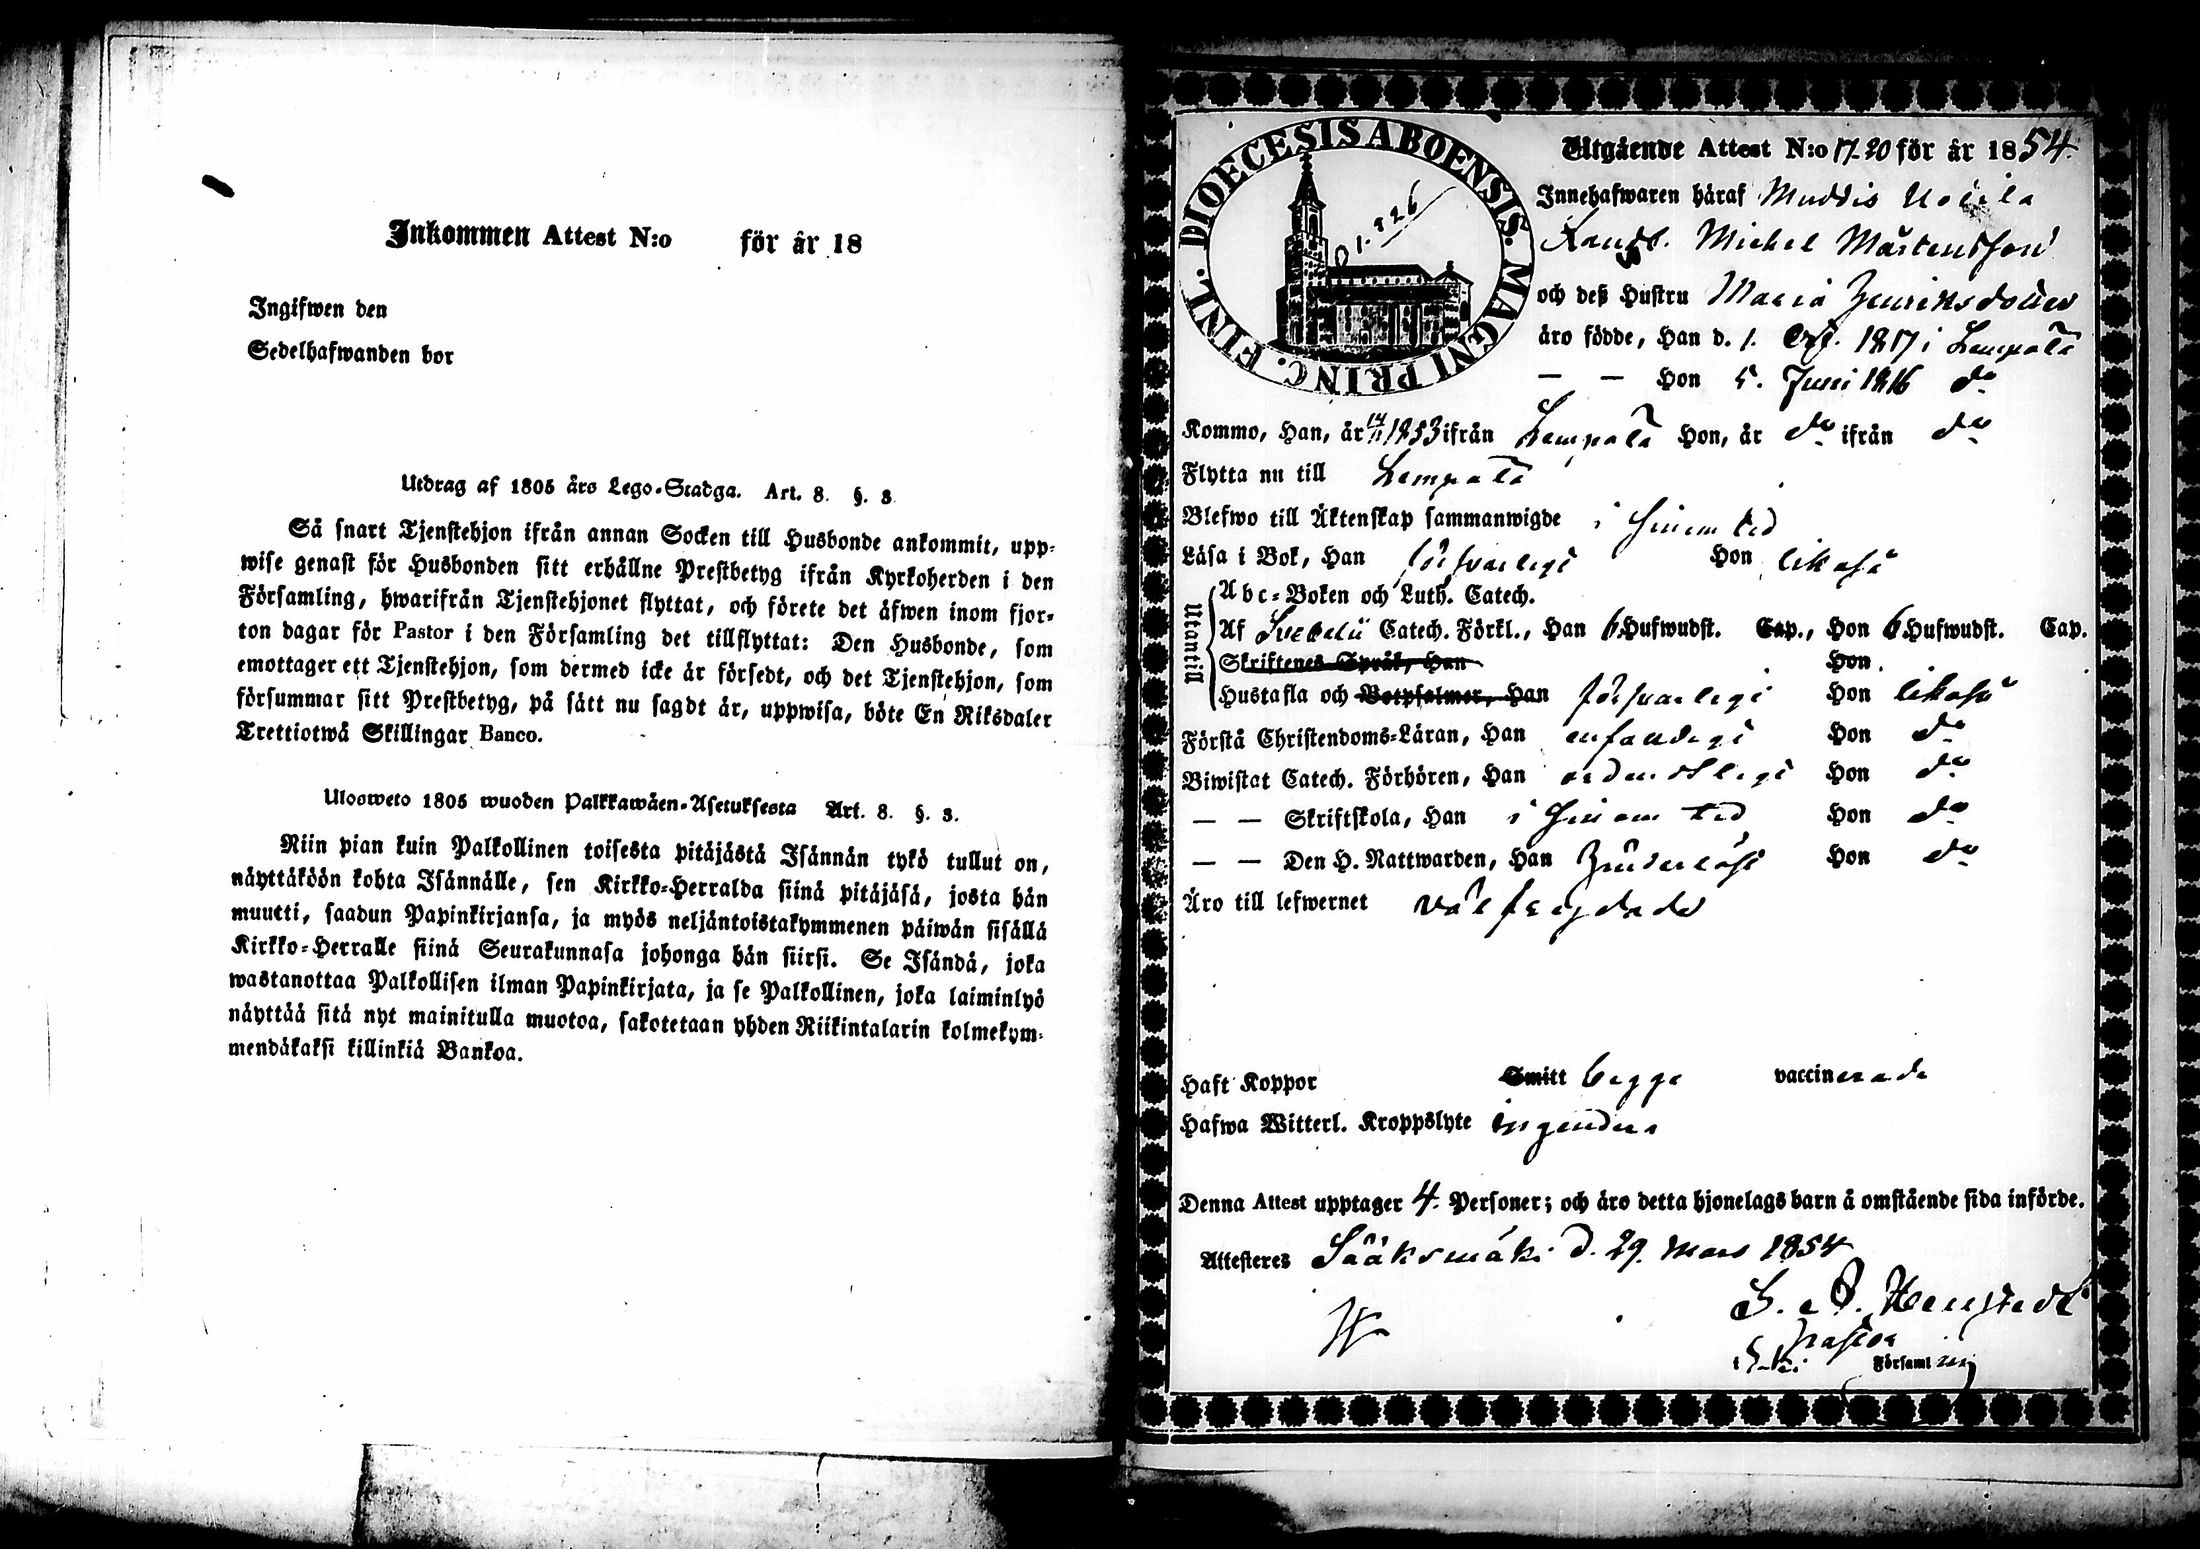 Inkommen Attest N:o för år 18
Ingifwen den
Sedelhafwanden bor
Utdrag af 1805 års Lego-Stadga. Art. 8. §. 3
Så snart Tjenstehjon ifrån annan Socken till Husbonde ankommit, upp-
wise genast för Husbonden sitt erhållne Prestbetyg ifrån Kyrkoherden i den
Församling, hwarifrån Tjenstehjonet flyttat, och förete det äfwen inom fjor-
ton dagar för Pastor i den Församling det tillflyttat: Den Husbonde, som
emottager ett Tjenstehjon, som dermed icke är försedt, och det Tjenstehjon, som
försummar sitt Prestbetyg, på sätt nu sagdt är, uppwisa, böte En Riksdaler
Trettiotwå Skillingar Banco.
Ulosweto 1805 wuoden Palkkawäen-Asetuksesta Art. 8. §. 3.
Niin pian kuin Palkollinen toisesta pitäjästä Isännän tykö tullut on,
näyttäköön kohta Isännälle, sen Kirkko-Herralda siinä pitäjäsä, josta hän
muutti, saadun Papinkirjansa, ja myös neljäntoistakymmenen päiwän sisällä
Kirkko-Herralle siinä Seurakunnasa johonga hän siirsi. Se Isändä, joka
wastanottaa Palkollisen ilman Papinkirjata, ja se Palkollinen, joka laiminlyö
näyttää sitä nyt mainitulla muotoa, sakotetaan yhden Riikintalarin kolmekym-
mendäkaksi killinkiä Bankoa.
DIOECESIS ABOENSIS. MAGNI PRINC. FINL.
Utgående Attest N:o 17-20 för år 1854.
Innehafwaren häraf
Michel Mårtensson
och deß Hustru Maria Henriksdotter
äro födde, Han d. 1. Oct. 1817 i Lempälä
— — Hon 5. Juni 1816 do
Kommo, Han, år 1853 ifrån Lempälä Hon, år do ifrån do
Flytta nu till Lempälä
Blefwo till Äktenskap sammanwigde i sinom tid
Läsa i Bok, Han försvarligt Hon likaså
Utantill
Abc-Boken och Luth. Catech.
Af Svebelii Catech. Förkl., Han 6 Hufwudst. Cap., Hon 6 Hufwudst. Cap.
Skriftenes Språk, Han Hon
Hustafla och Botpsalmer, Han försvarligt Hon likaså
Förstå Christendoms-Läran, Han enfaldigt Hon do
Biwistat Catech. Förhören, Han ordentligt Hon do
— — Skriftskola, Han i sinom tid Hon do
— — Den H. Nattwarden, Han hinderlöst Hon do
Äro till lefwernet välfrejdade
Haft Koppor Smitt begge vaccinerade
Hafwa Witterl. Kroppslyte ingendera
Denna Attest upptager 4. Personer; och äro detta hjonelags barn å omstående sida införde.
Attesteres Sääksmäki d. 29. Mars 1854
Pastor
i S-ki Församling